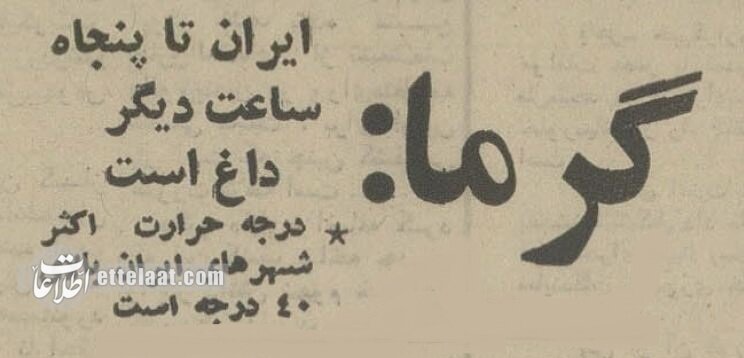 گرما:
ایران تا پنجاه
ساعت دیگر
داغ است
* درجه حرارت اکثر
شهرهای ایران
۴۰ درجه است
اطلاعات ettelaat.com